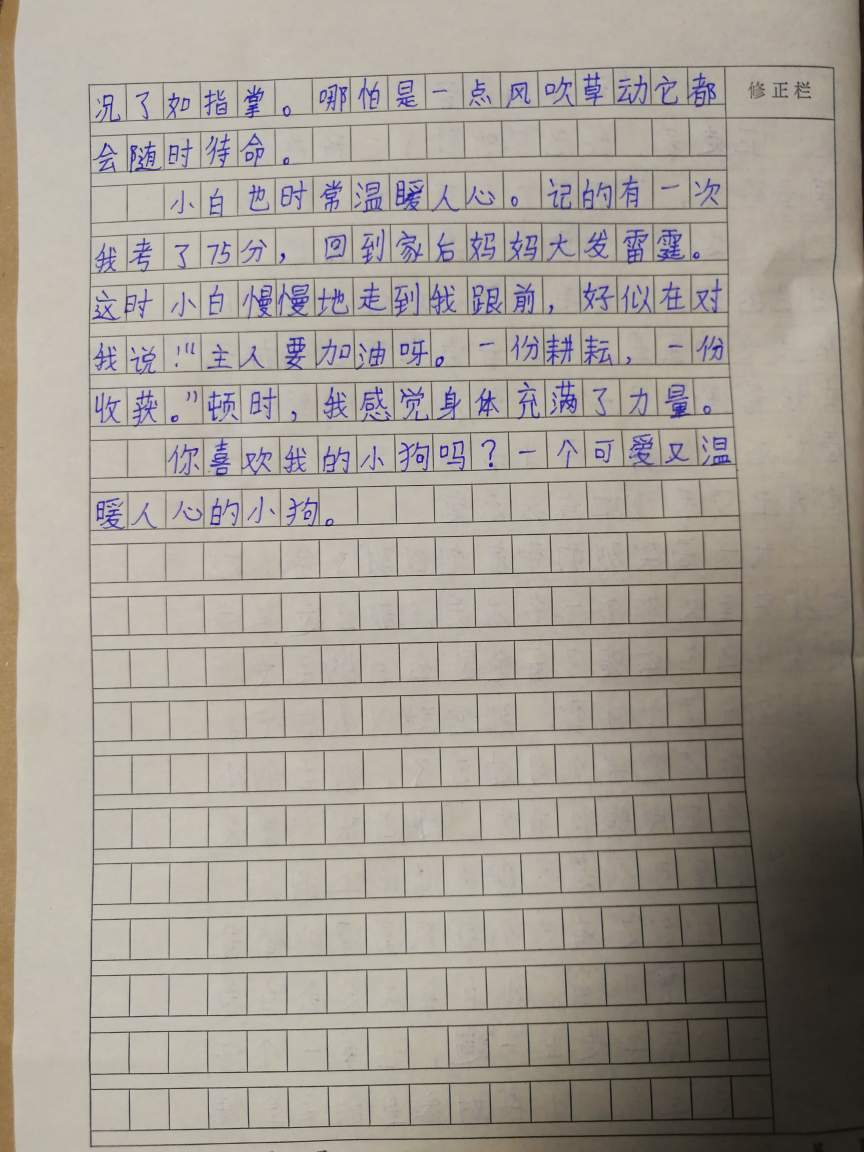 况了如指掌。哪怕是一点风吹草动它都
修正栏
会随时待命。
小白也时常温暖人心。记的有一次
我考了75分，回到家后妈妈大发雷霆。
这时小白慢慢地走到我跟前，好似在对
我说！“主人要加油呀。一份耕耘，一份
收获。”顿时，我感觉身体充满了力量。
你喜欢我的小狗吗？一个可爱又温
暖人心的小狗。